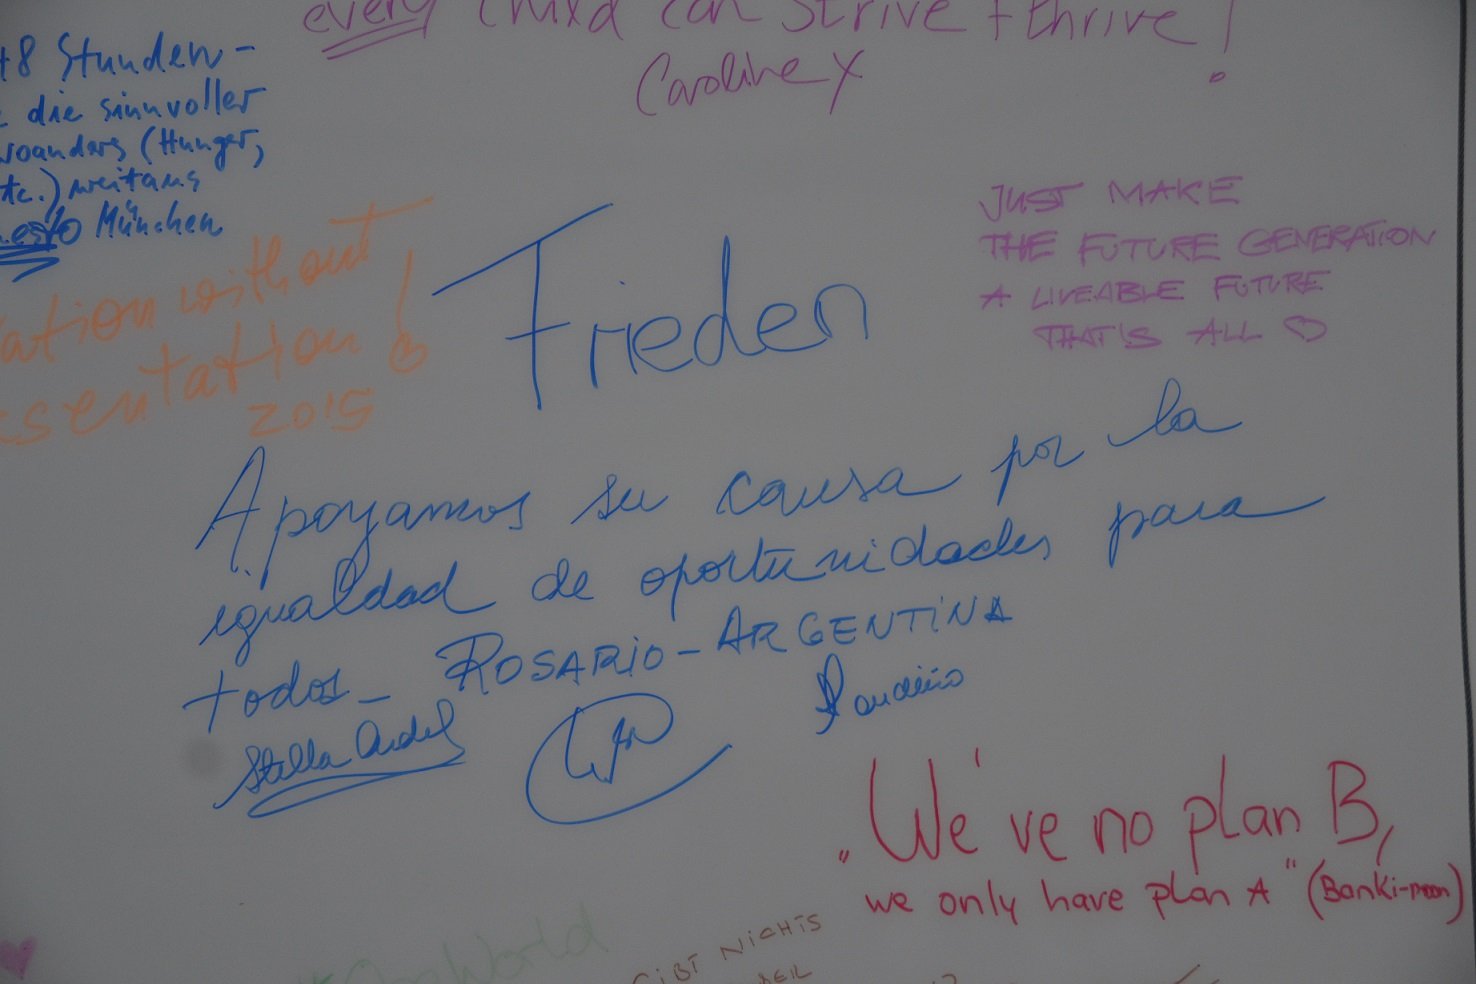 every child can strive + thrive!
Caroline X
48 Stunden-
die sinnvoller
woanders (Hunger,
etc.) weitaus
München
JUST MAKE
THE FUTURE GENERATION
A LIVEABLE FUTURE
THAT'S ALL ♡
ation without
esentation!
2015
Frieden
Apoyamos su causa por la
igualdad de oportunidades para
todos_ ROSARIO-ARGENTINA
Stella
„We've no plan B,
we only have plan A" (Banki-moon)
World
GIBT NICHTS